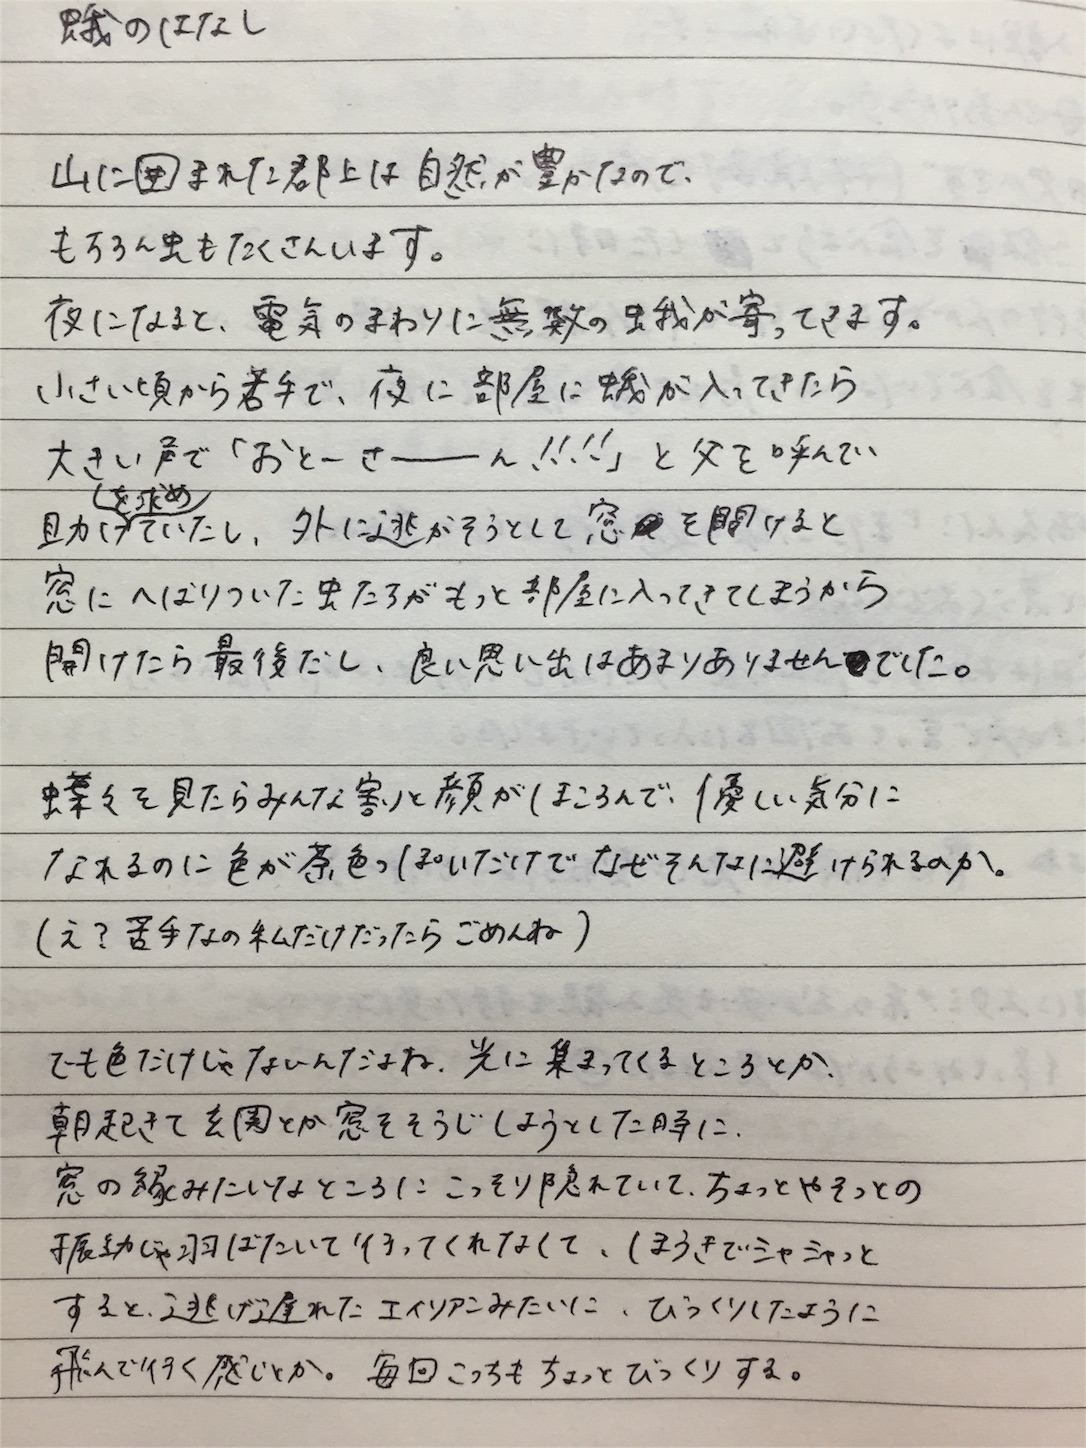 蛾のはなし
山に囲まれた郡上は自然が豊かなので、
もちろん虫もたくさんいます。
夜になると、電気のまわりに無数の蛾が寄ってきます。
小さい頃から苦手で、夜に部屋に蛾が入ってきたら
大きい声で「おとーさーーーん!!!!」と父を呼んでい
助けを求めていたし、外に逃がそうとして窓を開けると
窓にへばりついた虫たちがもっと部屋に入ってきてしまうから
開けたら最後だし、良い思い出はあまりありませんでした。
蝶々を見たらみんな割と顔がほころんで、優しい気分に
なれるのに色が茶色っぽいだけでなぜそんなに避けられるのか。
(え?苦手なの私だけだったらごめんね)
でも色だけじゃないんだよね、光に集まってくるところとか、
朝起きて玄関とか窓をそうじしようとした時に、
窓の縁みたいなところにこっそり隠れていて、ちょっとやそっとの
振動じゃ羽ばたいて行ってくれなくて、ほうきでシャシャっと
すると、逃げ遅れたエイリアンみたいに、びっくりしたように
飛んで行く感じとか。毎回こっちもちょっとびっくりする。